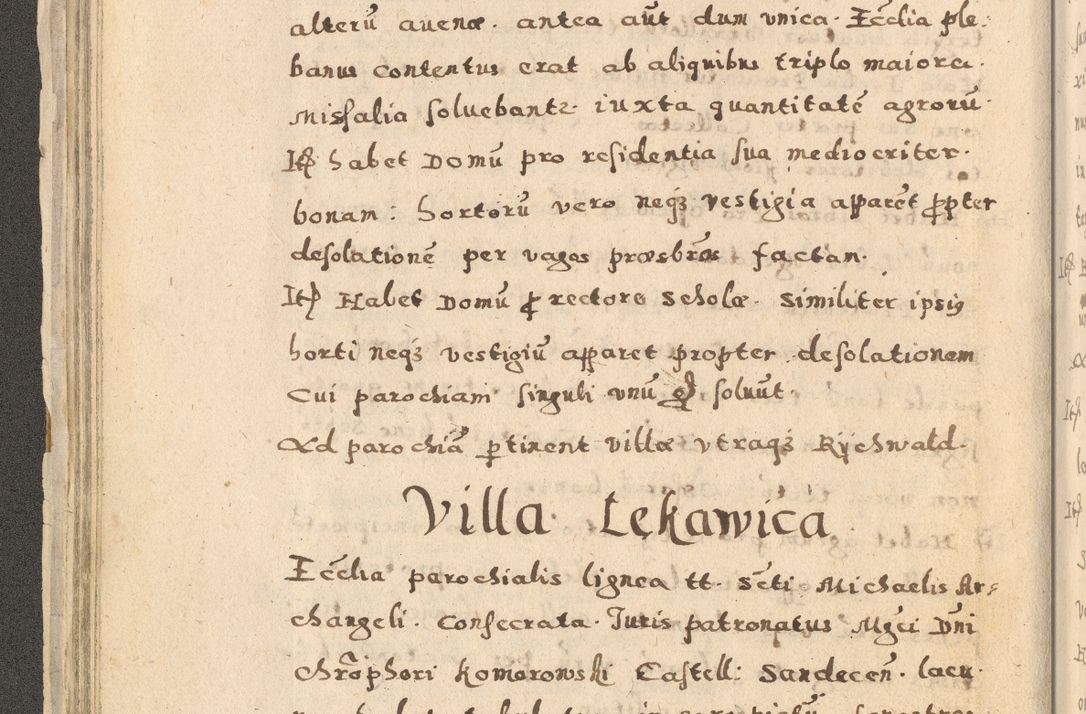 alterũ auenæ. antea aũt dum vnica. Eccłia ple:
banus contentus erat ab aliquibus triplo maiora.
Missalia soluebantz. iuxta quantitatẽ agrorũ.
Itẽ habet Domũ pro residentia sua mediocriter.
bonam: hortorũ vero neqꝫ vestigia apparẽt ꝓpter
desolationẽ per vagos præsbros factan.
Itẽ Habet Domũ ꝓ rectore Scholæ. Similiter ipsiꝰ
horti neqꝫ vestigiũ apparet propter desolationem
Cui parochiani singuli vnũ gͬ soluũt.
Ad parochiã ꝑtinent villæ vtraqꝫ Rÿchwałd.
Villa. Łękawica
Eccłia parochialis lignea tt. Scti Michaelis Ar-
changeli. Consecrata. Iuris patronatus Mgci Dñi
Chrõphori Komorowski Castell: Sandeceñ. lacu.